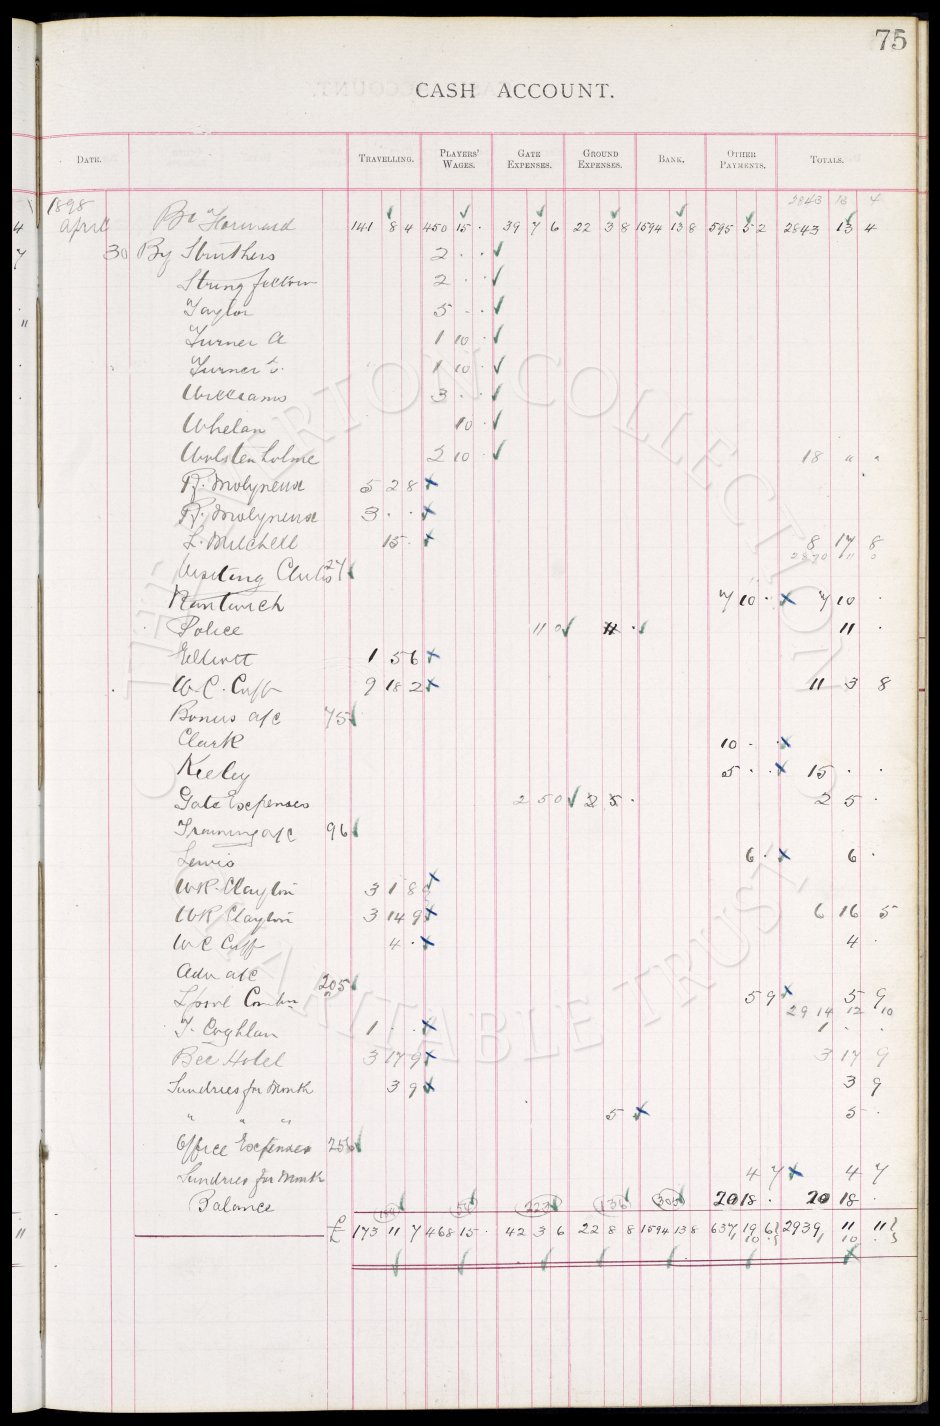 75
CASH ACCOUNT.
DATE. TRAVELLING. PLAYERS' WAGES. GATE EXPENSES. GROUND EXPENSES. BANK. OTHER PAYMENTS. TOTALS.
1898 2843 13 4
April Bt Forward 141 8 4 450 15 . 39 7 6 22 3 8 1594 13 8 595 5 2 2843 13 4
30 By Struthers 2 . .
Stringfellow 2 . .
Taylor 5 . .
Turner A 1 10 .
Turner 1 10 .
Williams 3 . .
Whelan 10 .
Wolstenholme 2 10 . 18 " "
R. Molyneux 5 2 8
R. Molyneux 3 . .
L. Mitchell 15 . 8 17 8
2870 11 0
Visiting Clubs 27
Nantwich 7 10 . 7 10 .
Police 11 0 11 . 11 .
Elliott 1 5 6
W.C. Cuff 9 18 2 11 3 8
Bonus a/c 75
Clark 10 . .
Keeley 5 . . 15 . .
Gate Expenses 2 5 0 2 5 . 2 5 .
Training a/c 96
Lewis 6 . 6 .
WR Clayton 3 1 8
WR Clayton 3 14 9 6 16 5
W C Cuff 4 . 4 .
Adv a/c 205
L'pool 5 9 5 9
2914 12 10
T. Coghlan 1 . . 1 . .
Bee Hotel 3 17 9 3 17 9
Sundries for Month 3 9 3 9
" " " 5 5 .
Office Expenses 256
Sundries for Month 4 7 4 7
Balance 20 18 . 20 18 .
54 223 136 305
£ 173 11 7 468 15 . 42 3 6 22 8 8 1594 13 8 637 19 6 2939 11 11
1 10 . 1 10 .
THE EVERTON COLLECTION CHARITABLE TRUST